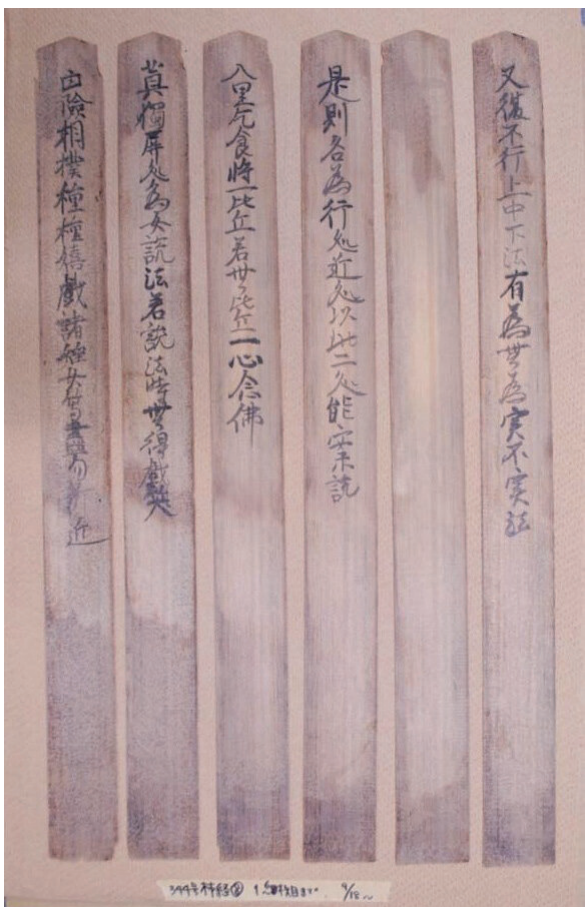 又復不行上中下法有為無為実不実法
是則名為行処近処以此二処能安楽説
入里乞食将一比丘若無比丘一心念佛
莫獨屏処為女説法若説法時無得戯笑
凶険相撲種種嬉戯諸婬女等盡勿親近
344号杮経② 9/18〜